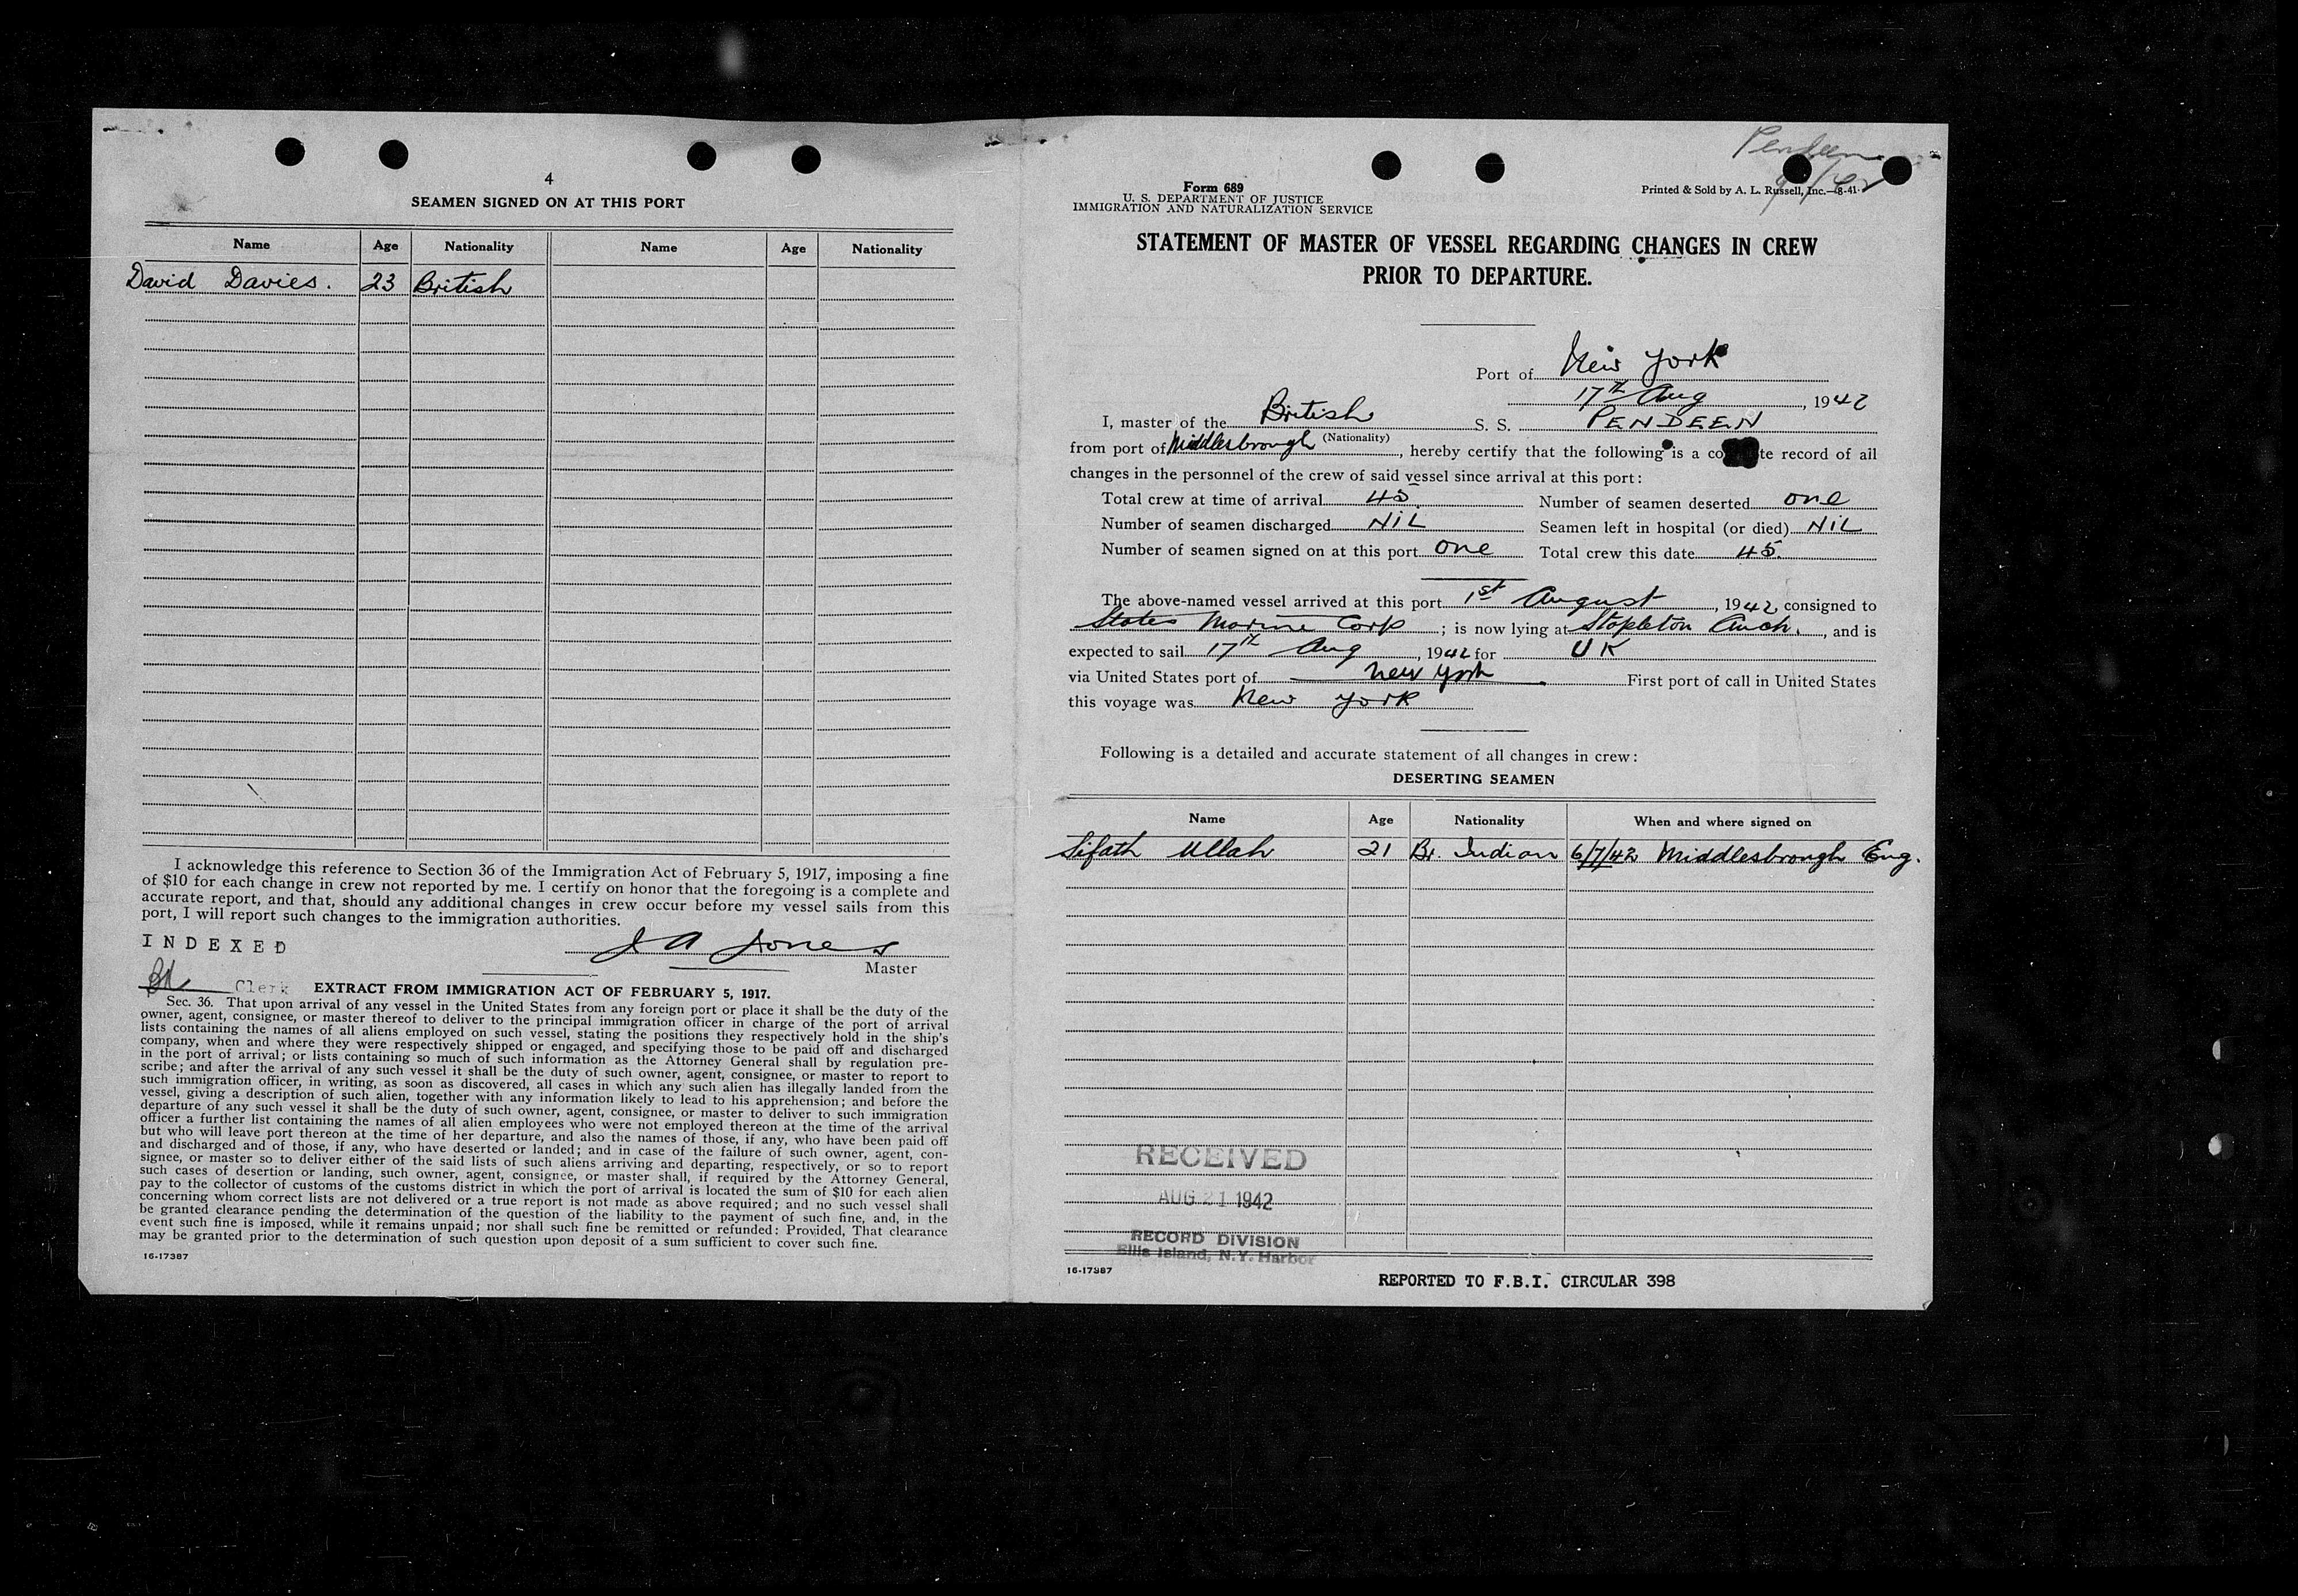 4
SEAMEN SIGNED ON AT THIS PORT
Name Age Nationality Name Age Nationality
David Davies. 23 British
I acknowledge this reference to Section 36 of the Immigration Act of February 5, 1917, imposing a fine
of $10 for each change in crew not reported by me. I certify on honor that the foregoing is a complete and
accurate report, and that, should any additional changes in crew occur before my vessel sails from this
port, I will report such changes to the immigration authorities.
INDEXED
J A Jones
Master
Clerk
EXTRACT FROM IMMIGRATION ACT OF FEBRUARY 5, 1917.
Sec. 36. That upon arrival of any vessel in the United States from any foreign port or place it shall be the duty of the
owner, agent, consignee, or master thereof to deliver to the principal immigration officer in charge of the port of arrival
lists containing the names of all aliens employed on such vessel, stating the positions they respectively hold in the ship's
company, when and where they were respectively shipped or engaged, and specifying those to be paid off and discharged
in the port of arrival; or lists containing so much of such information as the Attorney General shall by regulation pre-
scribe; and after the arrival of any such vessel it shall be the duty of such owner, agent, consignee, or master to report to
such immigration officer, in writing, as soon as discovered, all cases in which any such alien has illegally landed from the
vessel, giving a description of such alien, together with any information likely to lead to his apprehension; and before the
departure of any such vessel it shall be the duty of such owner, agent, consignee, or master to deliver to such immigration
officer a further list containing the names of all alien employees who were not employed thereon at the time of the arrival
but who will leave port thereon at the time of her departure, and also the names of those, if any, who have been paid off
and discharged and of those, if any, who have deserted or landed; and in case of the failure of such owner, agent, con-
signee, or master so to deliver either of the said lists of such aliens arriving and departing, respectively, or so to report
such cases of desertion or landing, such owner, agent, consignee, or master shall, if required by the Attorney General,
pay to the collector of customs of the customs district in which the port of arrival is located the sum of $10 for each alien
concerning whom correct lists are not delivered or a true report is not made as above required; and no such vessel shall
be granted clearance pending the determination of the question of the liability to the payment of such fine, and, in the
event such fine is imposed, while it remains unpaid; nor shall such fine be remitted or refunded: Provided, That clearance
may be granted prior to the determination of such question upon deposit of a sum sufficient to cover such fine.
16-17387
Pendeen
Form 689
U. S. DEPARTMENT OF JUSTICE
IMMIGRATION AND NATURALIZATION SERVICE
Printed & Sold by A. L. Russell, Inc.—8-41
STATEMENT OF MASTER OF VESSEL REGARDING CHANGES IN CREW
PRIOR TO DEPARTURE.
Port of New York
17th Aug, 1942
I, master of the British S. S. PENDEEN
(Nationality)
from port of Middlesbrough, hereby certify that the following is a co te record of all
changes in the personnel of the crew of said vessel since arrival at this port:
Total crew at time of arrival 45 Number of seamen deserted one
Number of seamen discharged NiL Seamen left in hospital (or died) NiL
Number of seamen signed on at this port one Total crew this date 45.
The above-named vessel arrived at this port 1st August, 1942, consigned to
States Marine Corp; is now lying at Stapleton Anch., and is
expected to sail 17th Aug, 1942 for UK
via United States port of New York First port of call in United States
this voyage was New York
Following is a detailed and accurate statement of all changes in crew:
DESERTING SEAMEN
Name Age Nationality When and where signed on
Sifath Ullah 21 Br. Indian 6/7/42 Middlesbrough Eng.
RECEIVED
AUG 21 1942
RECORD DIVISION
Ellis Island, N.Y. Harbor
16-17387
REPORTED TO F.B.I. CIRCULAR 398